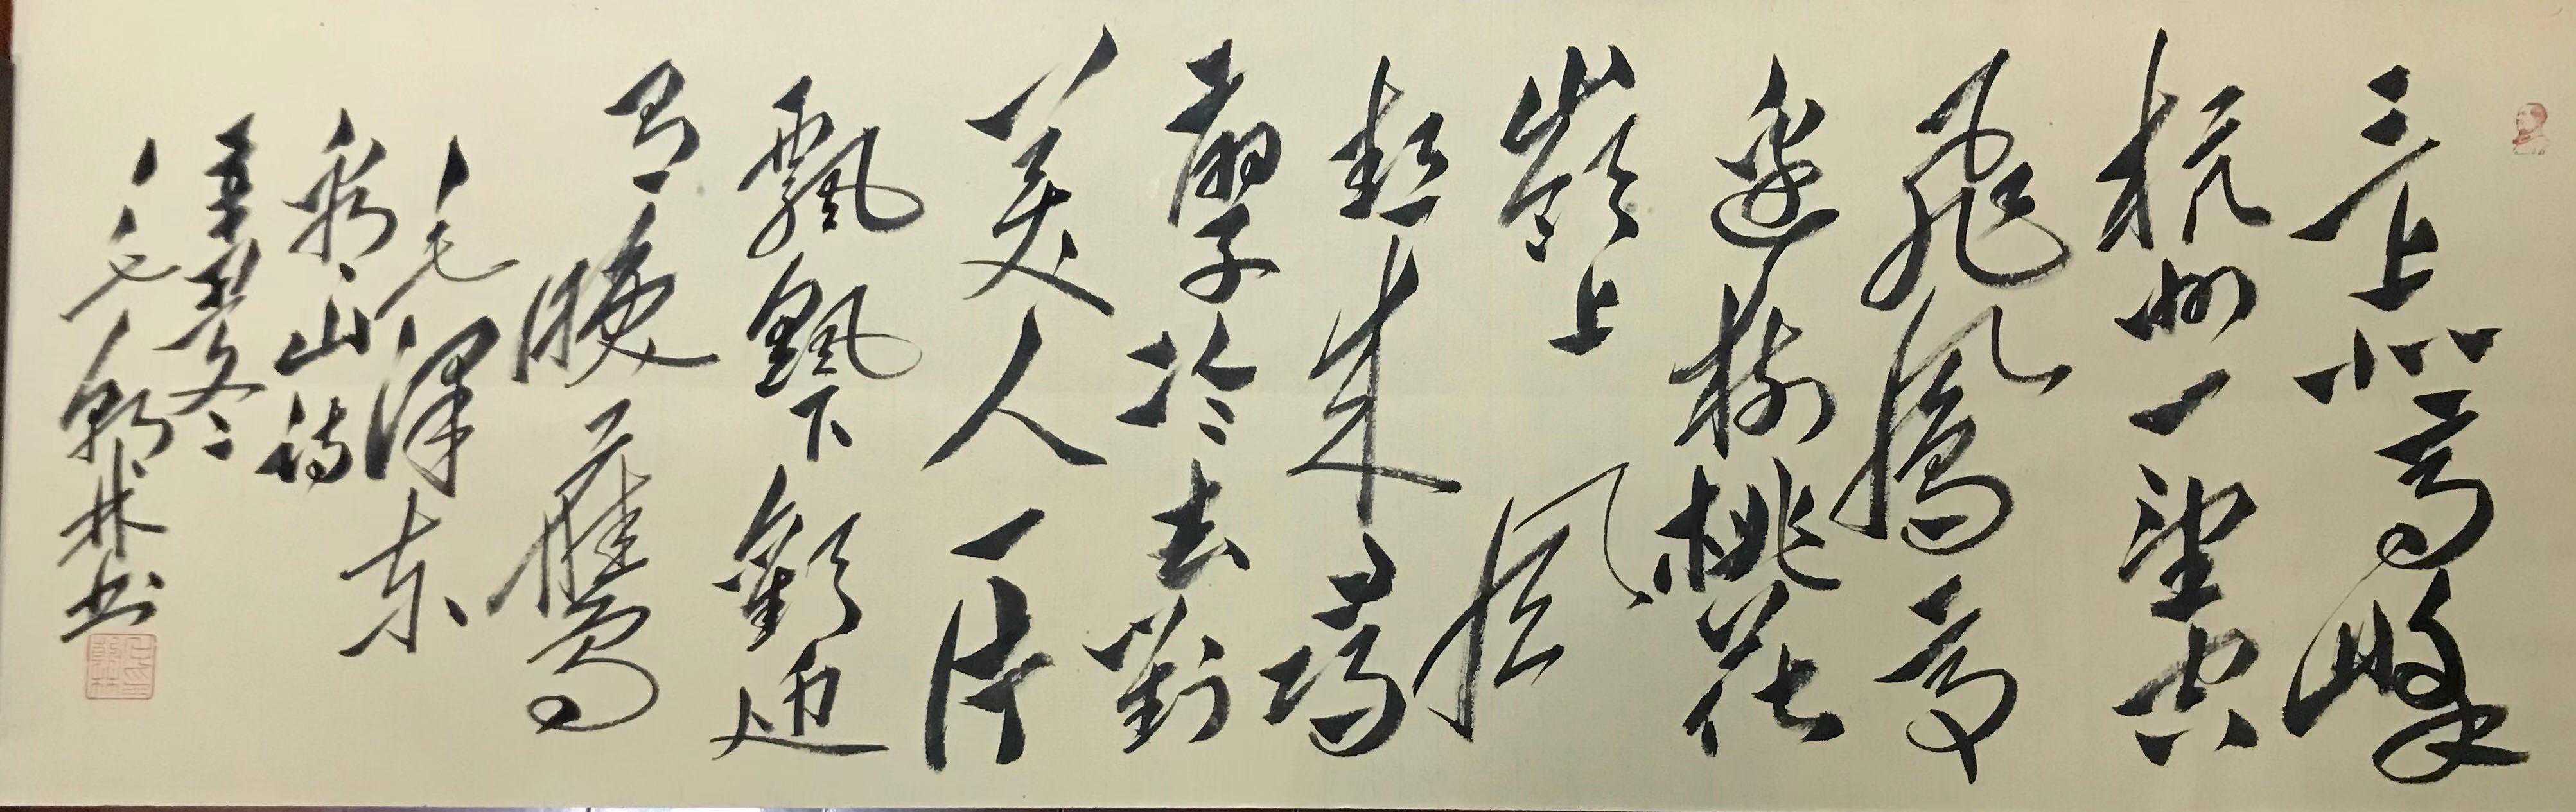 三上北高峰
杭州一望空
飛鳳亭
邊樹桃花
嶺上風
熱來尋
扇子冷去對
美人一片
飄飖下歡迎
有晚鷹
毛澤東
看山詩
毛林书